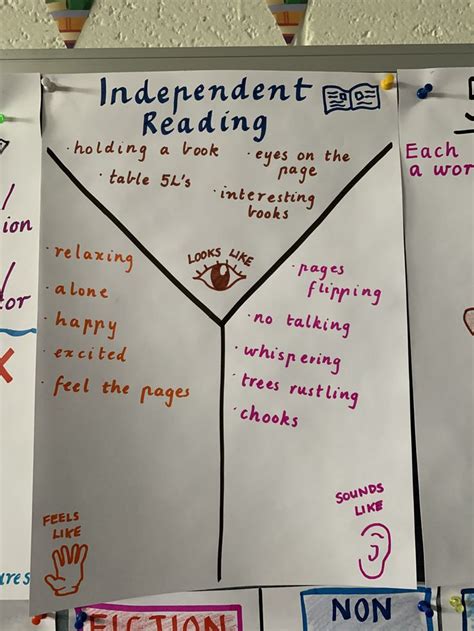 Independent
Reading
· holding a book
· eyes on the
page
· table 5L's
· interesting
books
LOOKS LIKE
· relaxing
· alone
· happy
· excited
· feel the pages
· pages
flipping
· no talking
· whispering
· trees rustling
· chooks
FEELS
LIKE
SOUNDS
LIKE
Each
a wor
ion
or
ures
FICTION
NON